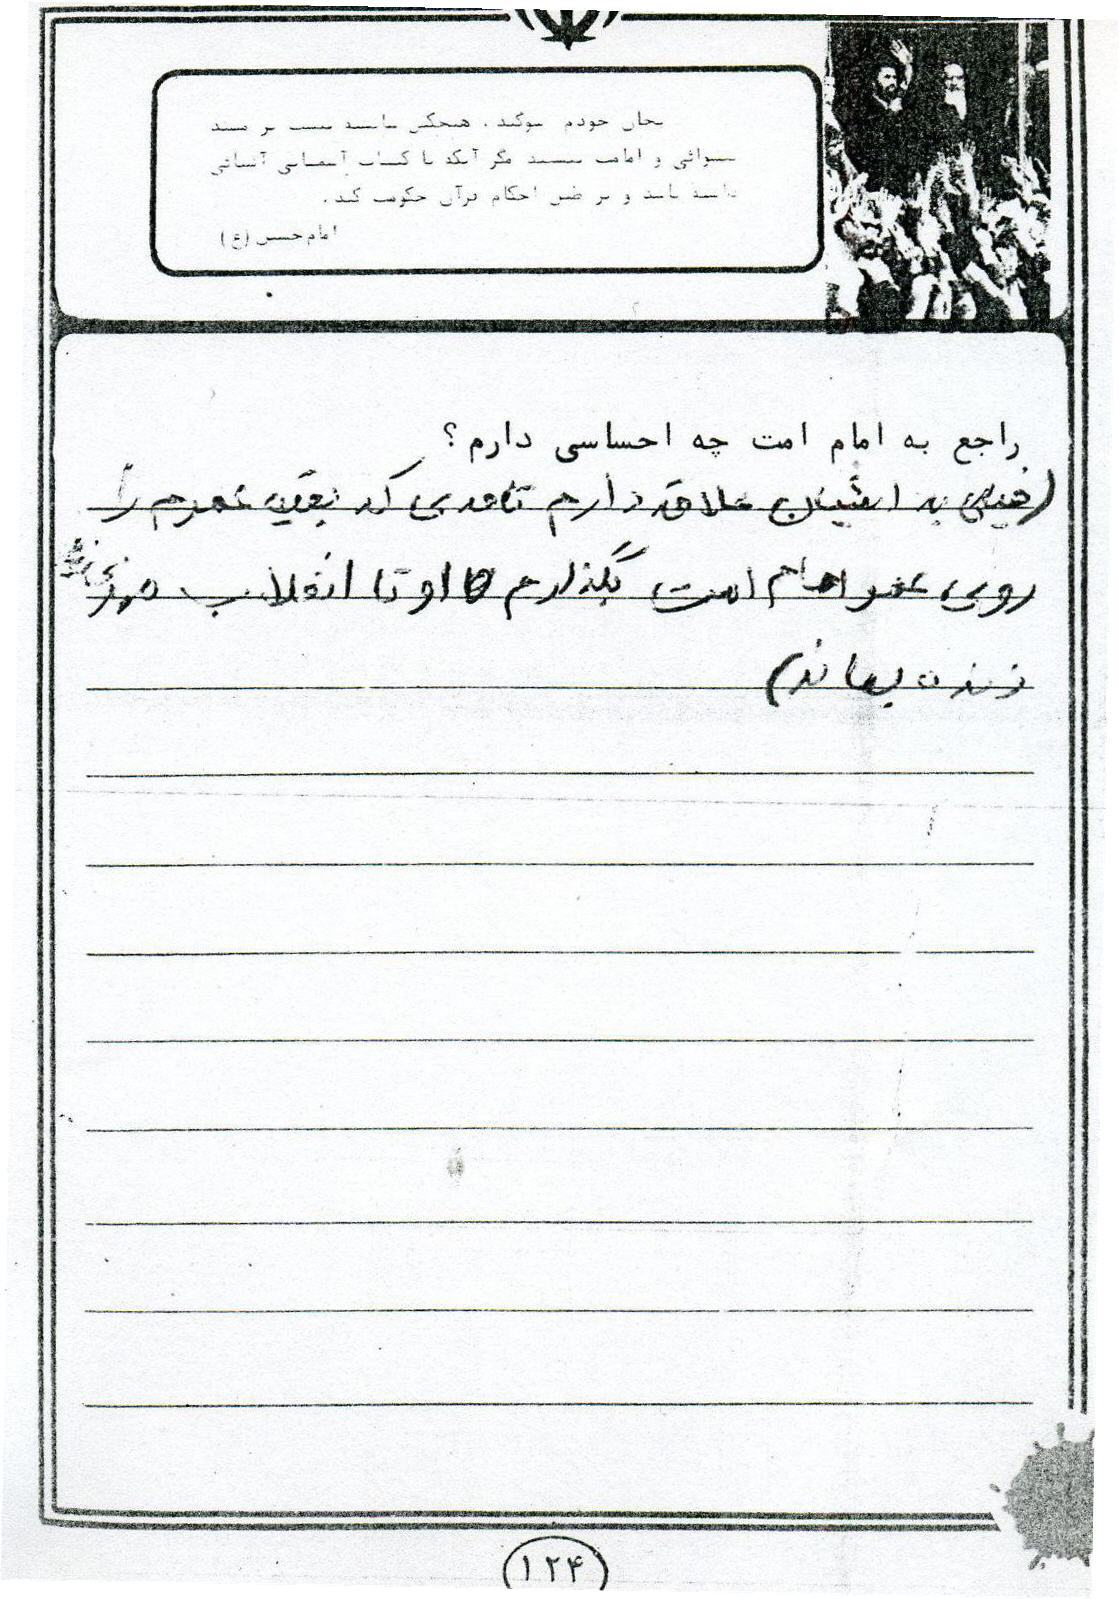 بجان خودم سوگند، هیچکس شایسته نیست بر مسند
پیشوائی و امامت بنشیند مگر آنکه با کتاب آسمانی آشنائی
داشته باشد و بر طبق احکام قرآن حکومت کند.
امام حسین (ع)
راجع به امام امت چه احساسی دارم؟
(خیلی به ایشان علاقه دارم تا حدی که بقیه عمرم را
روی عمر امام امت بگذارم تا او تا انقلاب مهدی
زنده بماند)
۱۲۴